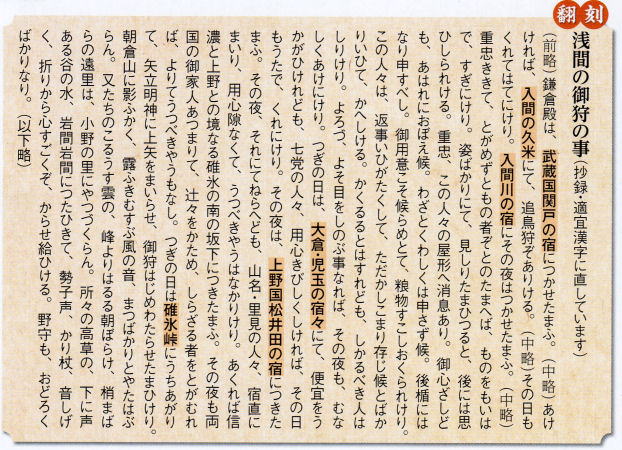 翻刻
浅間の御狩の事（抄録・適宜漢字に直しています）
（前略）鎌倉殿は、武蔵国関戸の宿につかせたまふ。（中略）あけ
ければ、入間の久米にて、追鳥狩ぞありける。（中略）その日も
くれてはてにけり。入間川の宿にその夜はつかせたまふ。（中略）
重忠ききて、とがめずともの者ぞとのたまへば、ものをもいは
で、すぎにけり。姿ばかりにて、見しりたまひつると、後には思
ひしられける。重忠、この人々の屋形へ消息あり。御心ざしど
も、あはれにおぼえ候。わざとくわしくは申さず候。後楯には
なり申すべし。御用意こそ候らめとて、粮物すこしおくられけり。
この人々は、返事いひがたくして、ただかしこまり存じ候とばか
りいひて、かへしける。かくるるとはすれども、しかるべき人は
しりけり。よろづ、よそ目をしのぶ事なれば、その夜も、むな
しくあけにけり。つぎの日は、大倉・児玉の宿々にて、便宜をう
かがひけれども、七党の人々、用心きびしくしければ、その日
もうたで、くれにけり。その夜は、上野国松井田の宿につきた
まふ。その夜、それにてねらへども、山名・里見の人々、宿直に
まいり、用心隙なくて、うつべきやうはなかりけり。あくれば信
濃と上野との境なる碓氷の南の坂下につきたまふ。その夜も両
国の御家人あつまりて、辻々をかため、しらざる者をとがむれ
ば、よりてうつべきやうもなし。つぎの日は碓氷峠にうちあがり
て、矢立明神に上矢をまいらせ、御狩はじめわたらせたまひけり。
朝倉山に影ふかく、露ふきむすぶ風の音、まつばかりとやたはぶ
らん。又たちのこるうす雲の、峰よりはるる朝ぼらけ、梢まば
らの遠里は、小野の里にやつづくらん。所々の高草の、下に声
ある谷の水、岩間岩間につたひきて、勢子声、かり杖、音しげ
く、折りから心すごくぞ、からせ給ひける。野守も、おどろく
ばかりなり。（以下略）